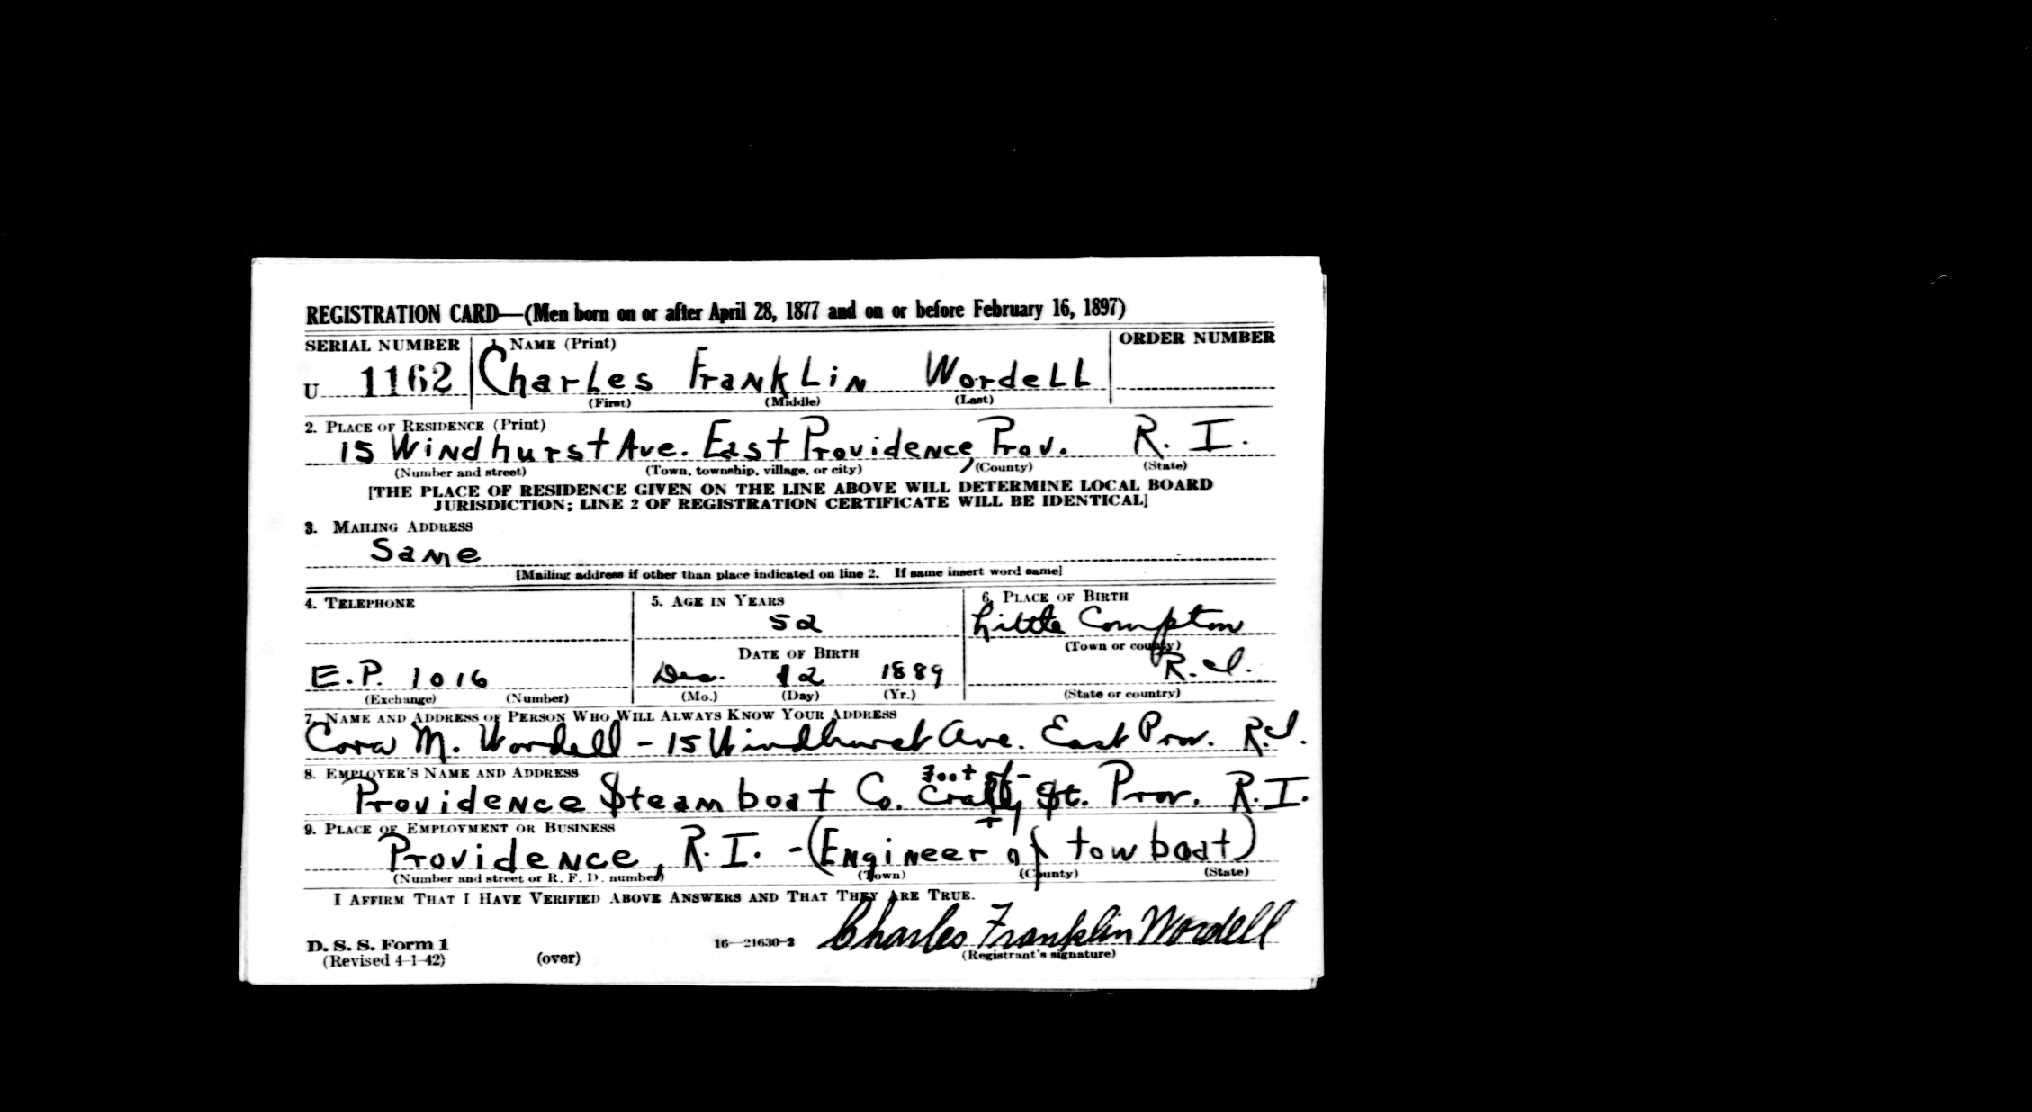 REGISTRATION CARD—(Men born on or after April 28, 1877 and on or before February 16, 1897)
SERIAL NUMBER 1. NAME (Print) ORDER NUMBER
U 1162 Charles Franklin Wordell
(First) (Middle) (Last)
2. PLACE OF RESIDENCE (Print)
15 Windhurst Ave. East Providence, Prov. R. I.
(Number and street) (Town, township, village, or city) (County) (State)
[THE PLACE OF RESIDENCE GIVEN ON THE LINE ABOVE WILL DETERMINE LOCAL BOARD
JURISDICTION; LINE 2 OF REGISTRATION CERTIFICATE WILL BE IDENTICAL]
3. MAILING ADDRESS
Same
[Mailing address if other than place indicated on line 2. If same insert word same]
4. TELEPHONE 5. AGE IN YEARS 6. PLACE OF BIRTH
52 Little Compton
DATE OF BIRTH (Town or county)
E.P. 1016 Dec. 12 1889 R.I.
(Exchange) (Number) (Mo.) (Day) (Yr.) (State or country)
7. NAME AND ADDRESS OF PERSON WHO WILL ALWAYS KNOW YOUR ADDRESS
Cora M. Wordell - 15 Windhurst Ave. East Prov. R.I.
8. EMPLOYER'S NAME AND ADDRESS
Foot of-
Providence Steamboat Co. St. Prov. R.I.
9. PLACE OF EMPLOYMENT OR BUSINESS
Providence, R.I. - (Engineer of tow boat)
(Number and street or R. F. D. number) (Town) (County) (State)
I AFFIRM THAT I HAVE VERIFIED ABOVE ANSWERS AND THAT THEY ARE TRUE.
Charles Franklin Wordell
D. S. S. Form 1 16—21630-2
(Revised 4-1-42) (over) (Registrant's signature)